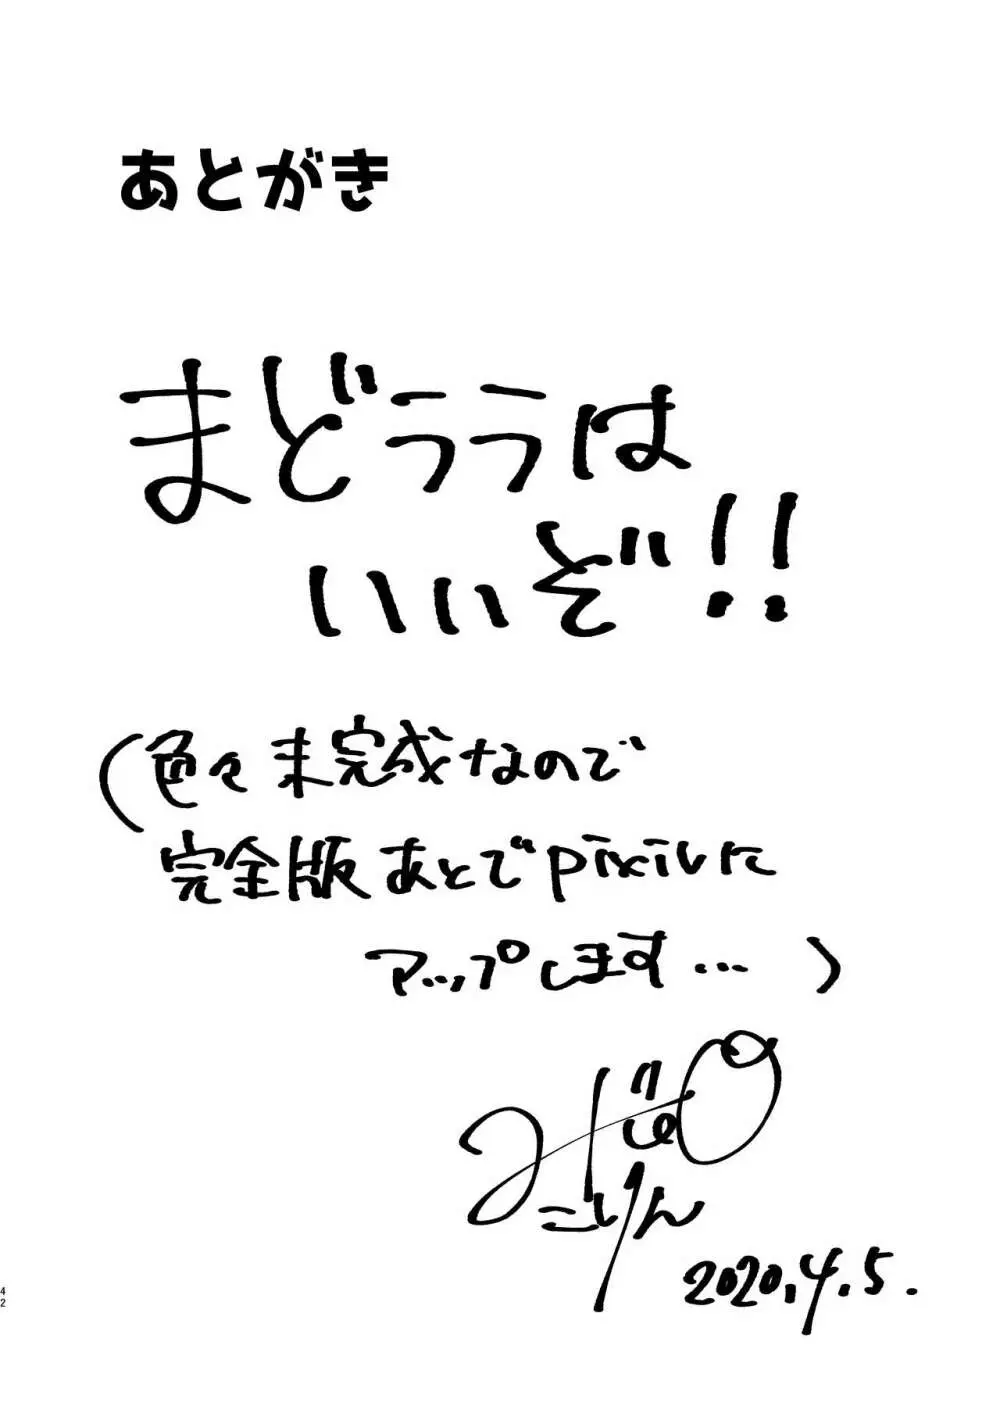 あとがき
まどううは
いいぞ!!
(色々未完成なので
完全版あとでpixivに
アップします…)
こりん
2020.4.5.
42